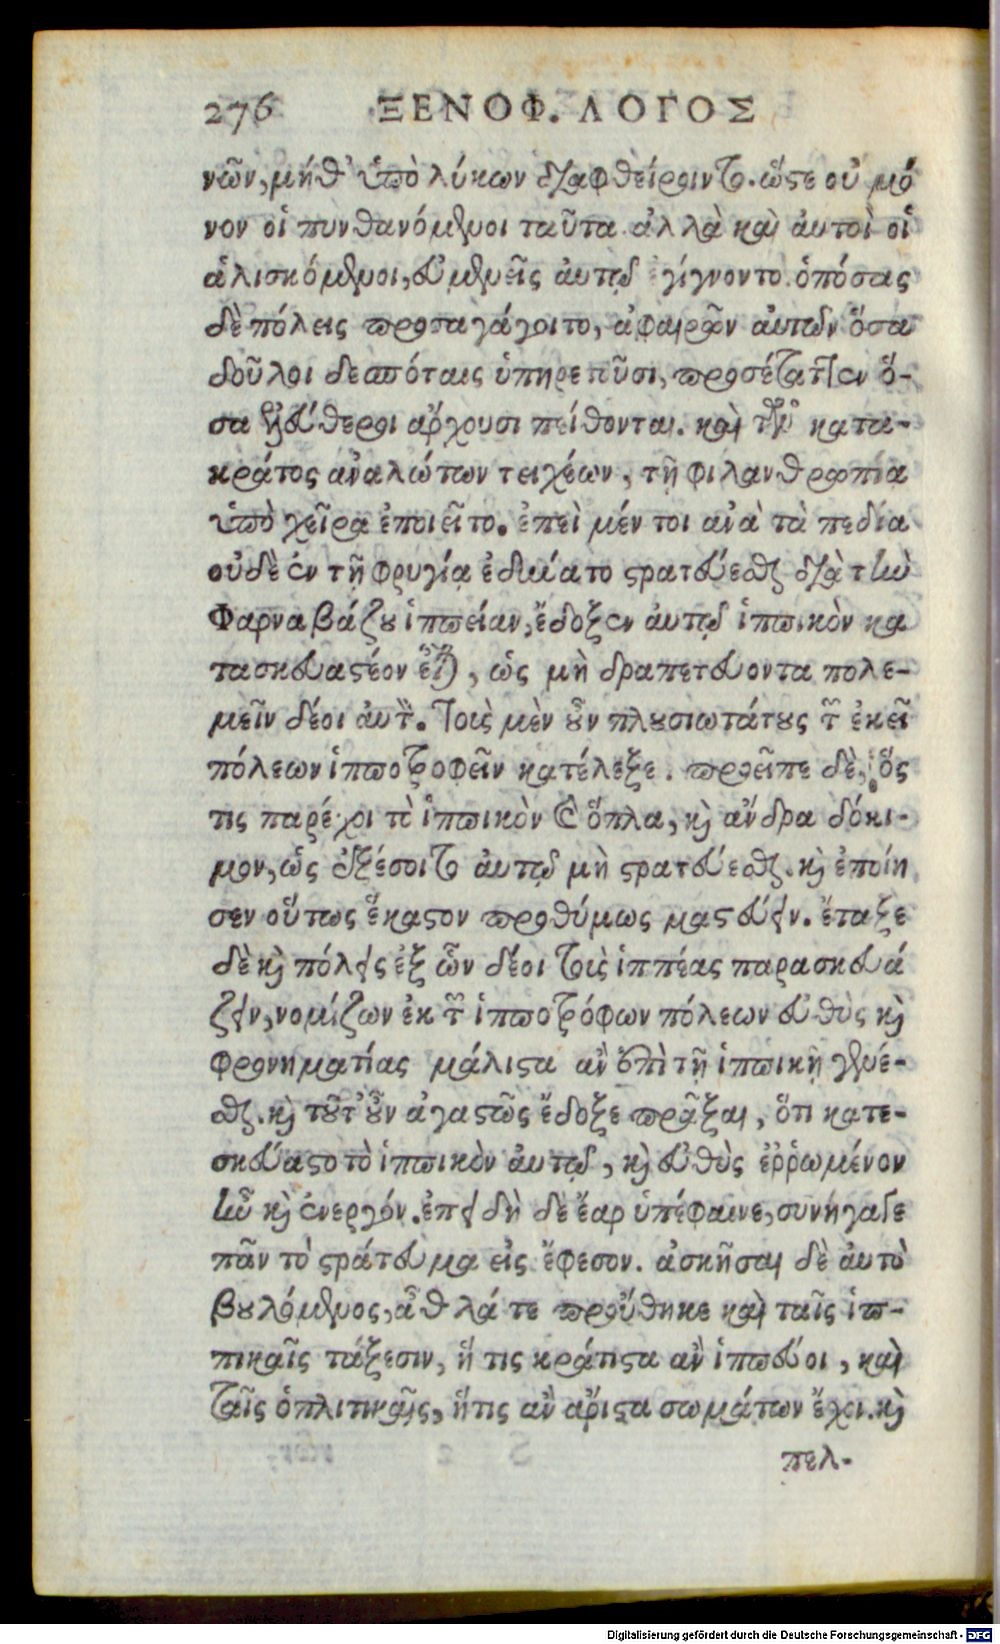 276 ΞΕΝΟΦ. ΛΟΓΟΣ
νῶν, μήθ' ὑπὸ λύκων διαφθείροιντο. ὥστε οὐ μό
νον οἱ πυνθανόμενοι ταῦτα ἀλλὰ καὶ ἀυτοὶ οἱ
ἁλισκόμενοι, εὐμενεῖς ἀυτῷ ἐγίγνοντο. ὁπόσας
δὲ πόλεις προσαγάγοιτο, ἀφαιρῶν ἀυτῶν ὅσα
δοῦλοι δεσπόταις ὑπηρετοῦσι, προσέταττεν ὅ-
σα ἐλεύθεροι ἄρχουσι πείθονται. καὶ τῶν κατα-
κράτος ἀναλώτων τειχέων, τῇ φιλανθρωπίᾳ
ὑπὸ χεῖρα ἐποιεῖτο. ἐπεὶ μέν τοι ἀνὰ τὰ πεδία
οὐδὲ ἐν τῇ φρυγίᾳ ἐδύνατο στρατεύεσθαι διὰ τὴν
Φαρναβάζου ἱππείαν, ἔδοξεν ἀυτῷ ἱππικὸν κα
τασκευαστέον εἶναι, ὡς μὴ δραπετεύοντα πολε-
μεῖν δέοι ἀυτόν. Τοὺς μὲν οὖν πλουσιωτάτους τῶν ἐκεῖ
πόλεων ἱπποτροφεῖν κατέλεξε. προεῖπε δὲ, ὅς
τις παρέχοι τὸ ἱππικὸν καὶ ὅπλα, καὶ ἄνδρα δόκι-
μον, ὡς ἐξέσοιτο ἀυτῷ μὴ στρατεύεσθαι. καὶ ἐποίη
σεν οὕτως ἕκαστον προθύμως μαστεύειν. ἔταξε
δὲ καὶ πόλεις ἐξ ὧν δέοι τοὺς ἱππέας παρασκευά
ζειν, νομίζων ἐκ τῶν ἱπποτρόφων πόλεων εὐθὺς καὶ
φρονηματίας μάλιστα ἂν ἐπὶ τῇ ἱππικῇ γενέ-
σθαι. καὶ τοῦτ' οὖν ἀγαστῶς ἔδοξε πρᾶξαι, ὅτι κατε-
σκεύαστο τὸ ἱππικὸν ἀυτῷ, καὶ εὐθὺς ἐῤῥωμένον
ἦν καὶ ἐνεργόν. ἐπειδὴ δὲ ἔαρ ὑπέφαινε, συνήγαγε
πᾶν τὸ στράτευμα εἰς ἔφεσον. ἀσκῆσαι δὲ ἀυτὸ
βουλόμενος, ἆθλά τε προὔθηκε καὶ ταῖς ἱπ-
πικαῖς τάξεσιν, ἥ τις κράτιστα ἂν ἱππεύοι, καὶ
ταῖς ὁπλιτικαῖς, ἥτις ἂν ἄριστα σωμάτων ἔχοι. καὶ
πελ-
Digitalisierung gefördert durch die Deutsche Forschungsgemeinschaft - DFG